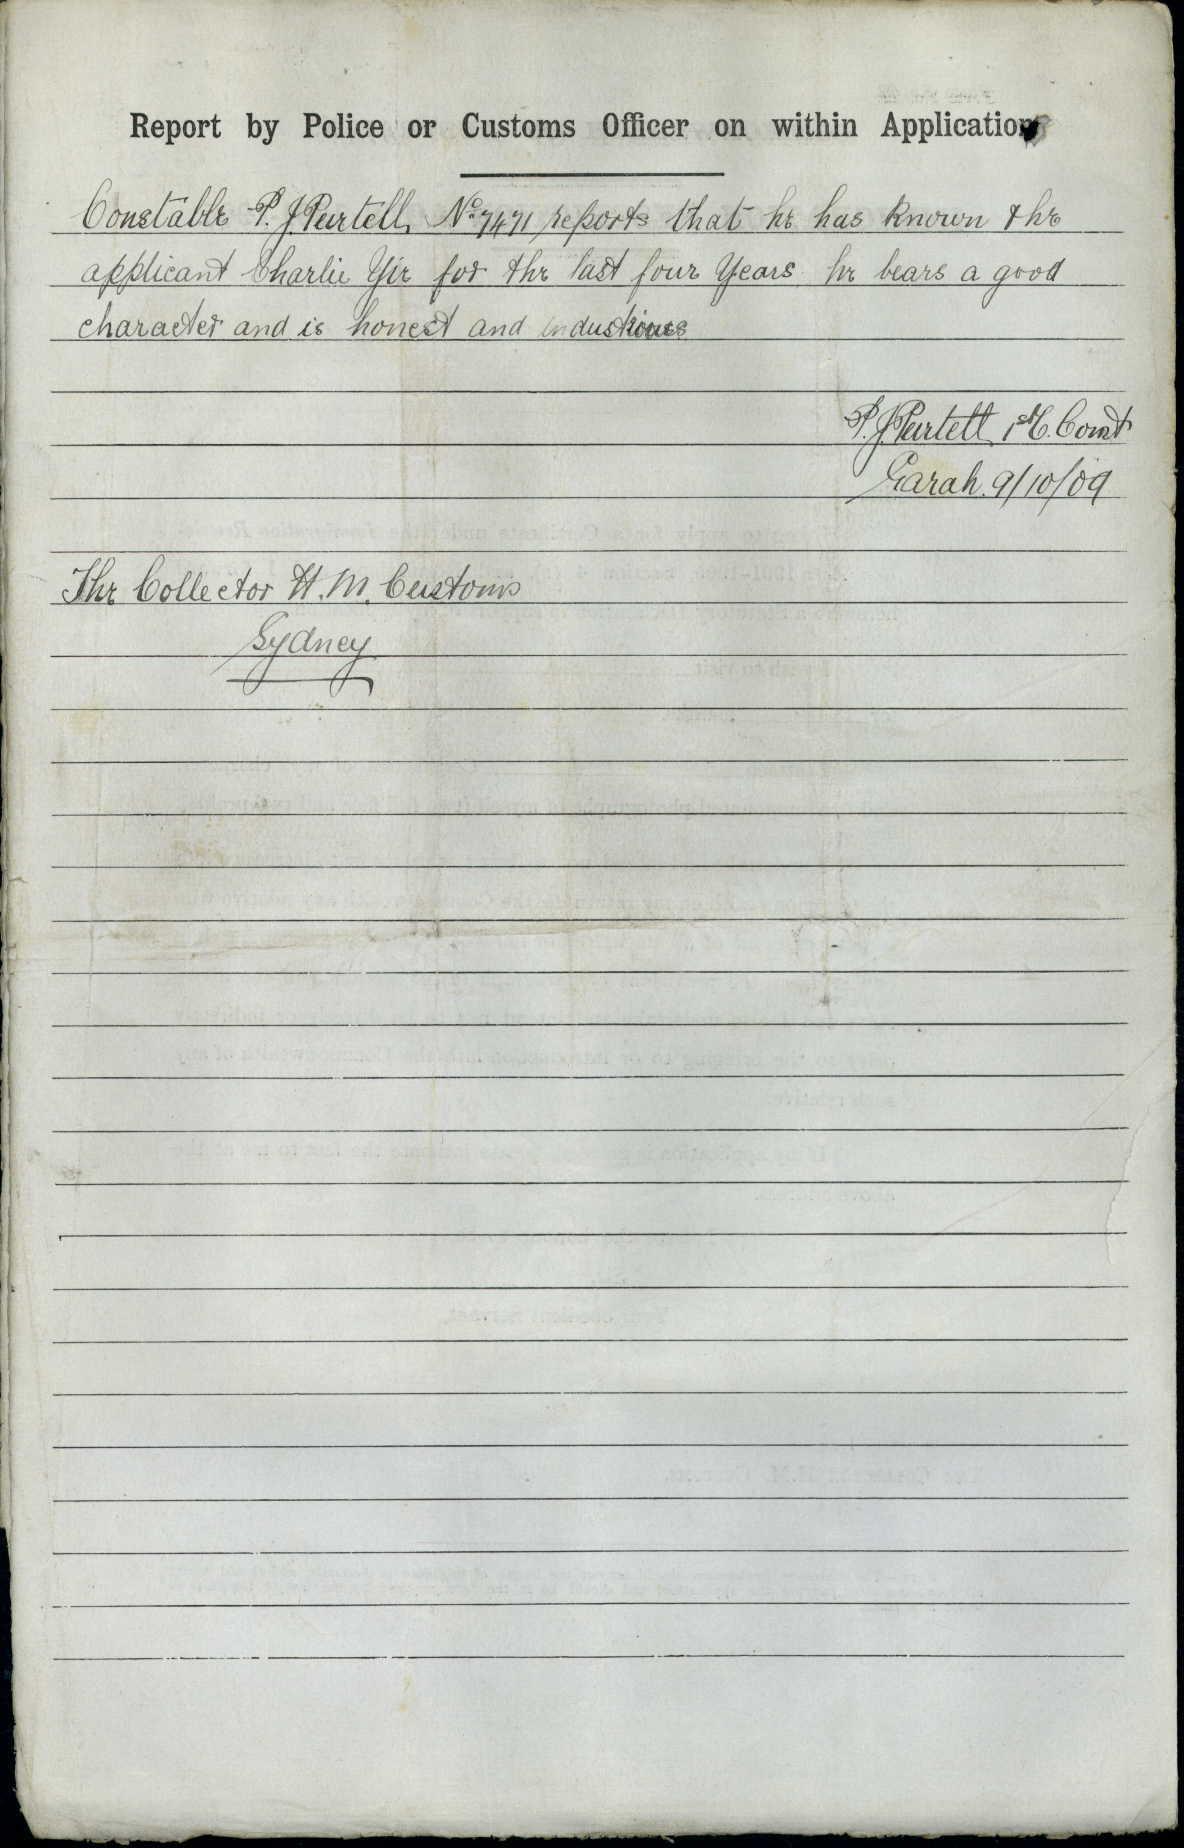 Report by Police or Customs Officer on within Application
Constable P. J. Purtell, No 7471 reports that he has known the
applicant Charlie Yir for the last four Years he bears a good
character and is honest and industrious
P. J. Purtell 1st C. Const
Garah. 9/10/09
The Collector H. M. Customs
Sydney